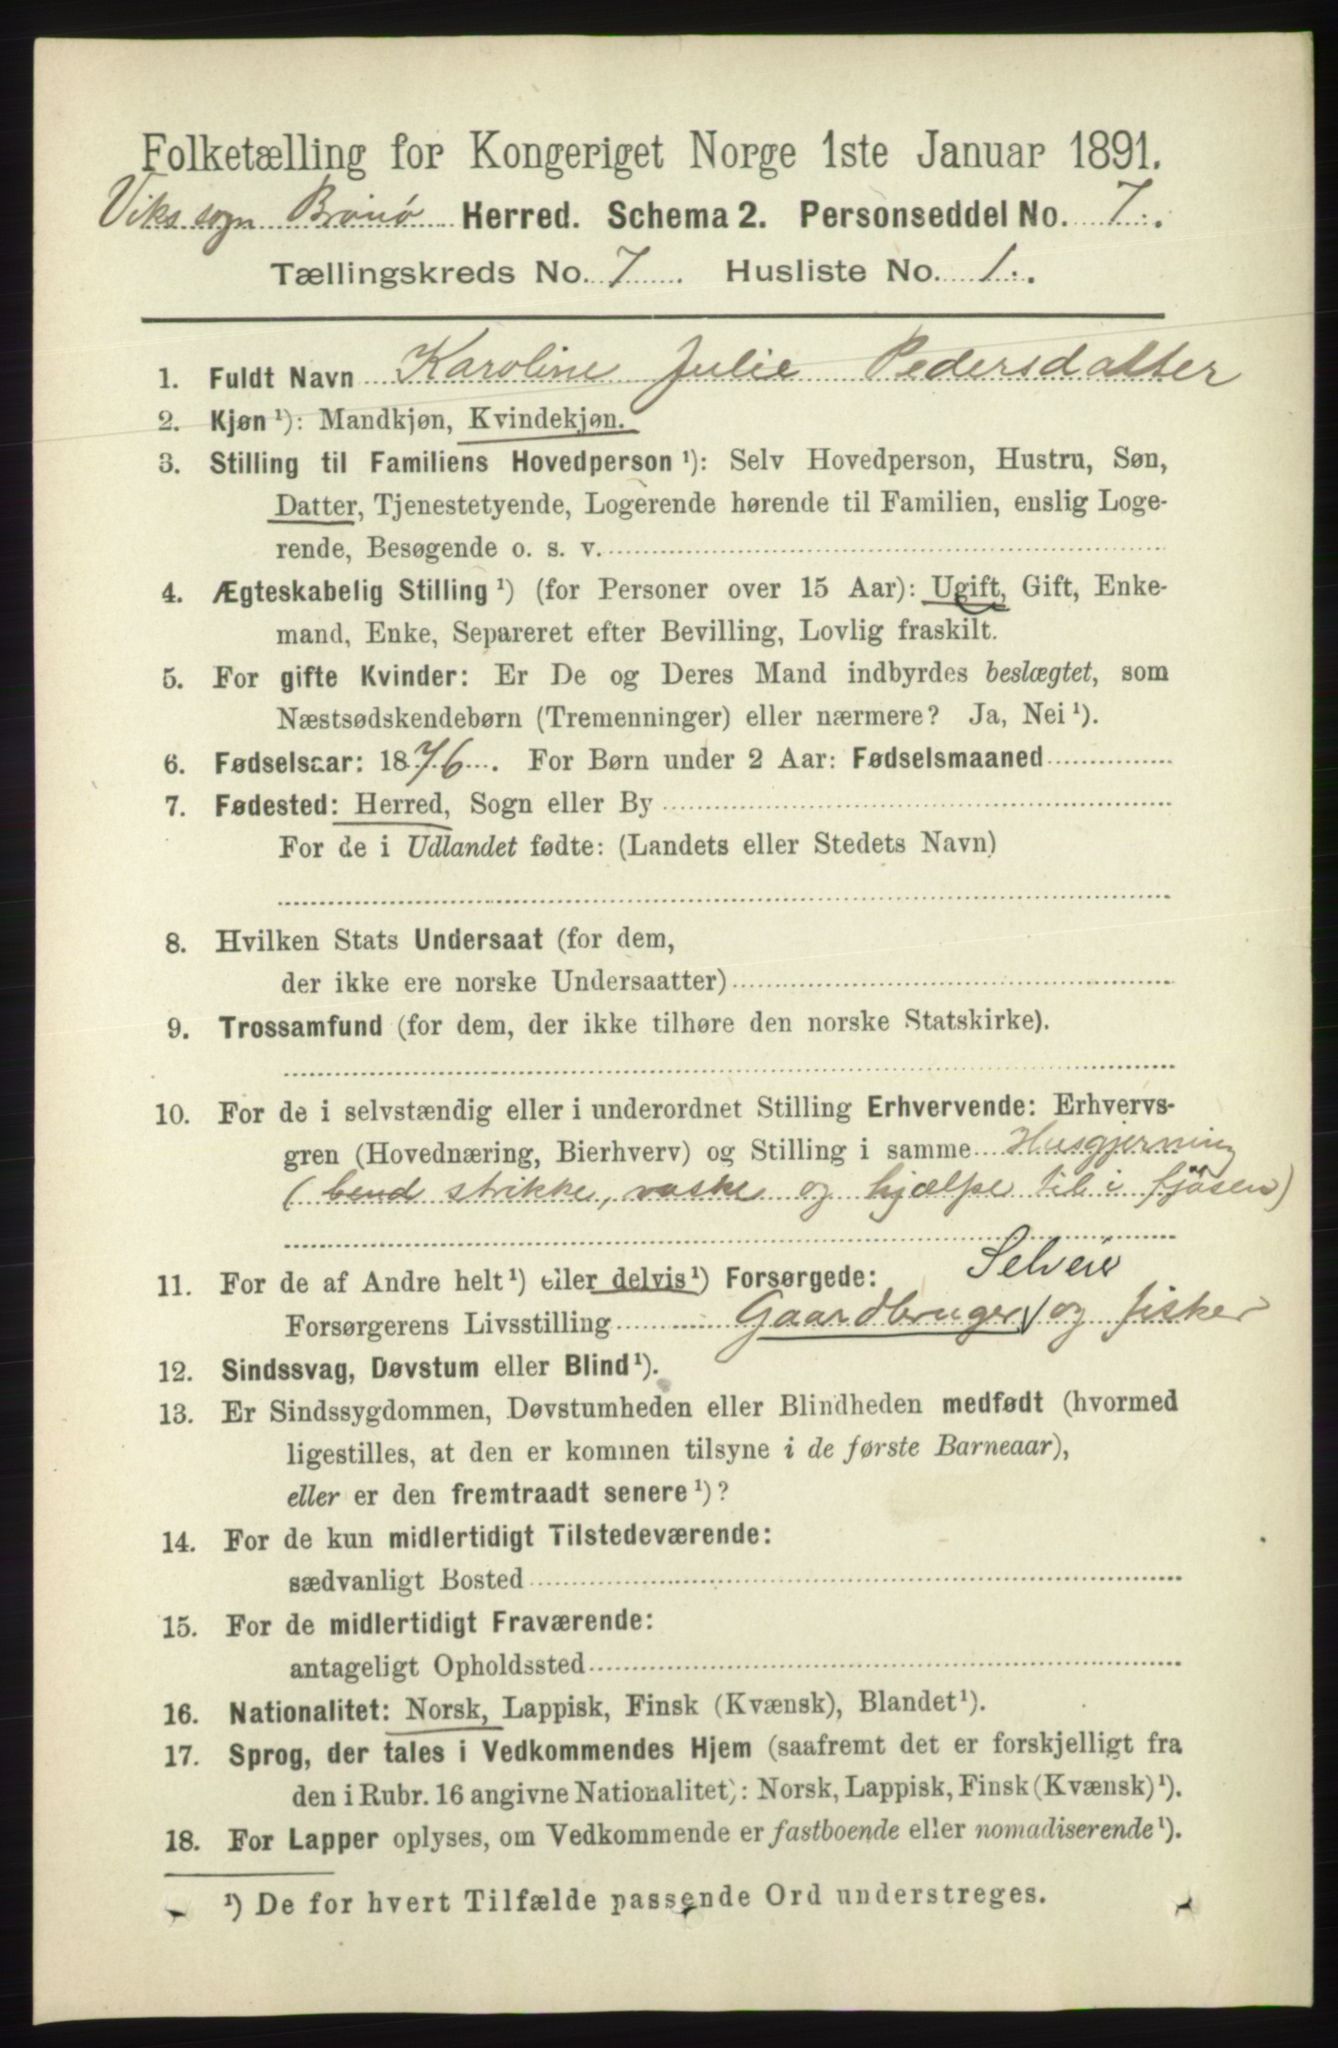 Folketælling for Kongeriget Norge 1ste Januar 1891.
Viks sogn Brønø Herred. Schema 2. Personseddel No. 7.
Tællingskreds No. 7 Husliste No. 1.
1. Fuldt Navn Karoline Julie Pedersdatter
2. Kjøn ¹): Mandkjøn, Kvindekjøn.
3. Stilling til Familiens Hovedperson ¹): Selv Hovedperson, Hustru, Søn,
Datter, Tjenestetyende, Logerende hørende til Familien, enslig Loge-
rende, Besøgende o. s. v.
4. Ægteskabelig Stilling ¹) (for Personer over 15 Aar): Ugift, Gift, Enke-
mand, Enke, Separeret efter Bevilling, Lovlig fraskilt.
5. For gifte Kvinder: Er De og Deres Mand indbyrdes beslægtet, som
Næstsødskendebørn (Tremenninger) eller nærmere? Ja, Nei ¹).
6. Fødselsaar: 1876. For Børn under 2 Aar: Fødselsmaaned
7. Fødested: Herred, Sogn eller By
For de i Udlandet fødte: (Landets eller Stedets Navn)
8. Hvilken Stats Undersaat (for dem,
der ikke ere norske Undersaatter)
9. Trossamfund (for dem, der ikke tilhøre den norske Statskirke).
10. For de i selvstændig eller i underordnet Stilling Erhvervende: Erhvervs-
gren (Hovednæring, Bierhverv) og Stilling i samme Husgjerning
( strikke, vaske og hjælpe til i fjøsen)
11. For de af Andre helt ¹) eller delvis ¹) Forsørgede: Selveier
Forsørgerens Livsstilling Gaardbruger og fisker
12. Sindssvag, Døvstum eller Blind ¹).
13. Er Sindssygdommen, Døvstumheden eller Blindheden medfødt (hvormed
ligestilles, at den er kommen tilsyne i de første Barneaar),
eller er den fremtraadt senere ¹)?
14. For de kun midlertidigt Tilstedeværende:
sædvanligt Bosted
15. For de midlertidigt Fraværende:
antageligt Opholdssted
16. Nationalitet: Norsk, Lappisk, Finsk (Kvænsk), Blandet ¹).
17. Sprog, der tales i Vedkommendes Hjem (saafremt det er forskjelligt fra
den i Rubr. 16 angivne Nationalitet): Norsk, Lappisk, Finsk (Kvænsk) ¹).
18. For Lapper oplyses, om Vedkommende er fastboende eller nomadiserende ¹).
¹) De for hvert Tilfælde passende Ord understreges.